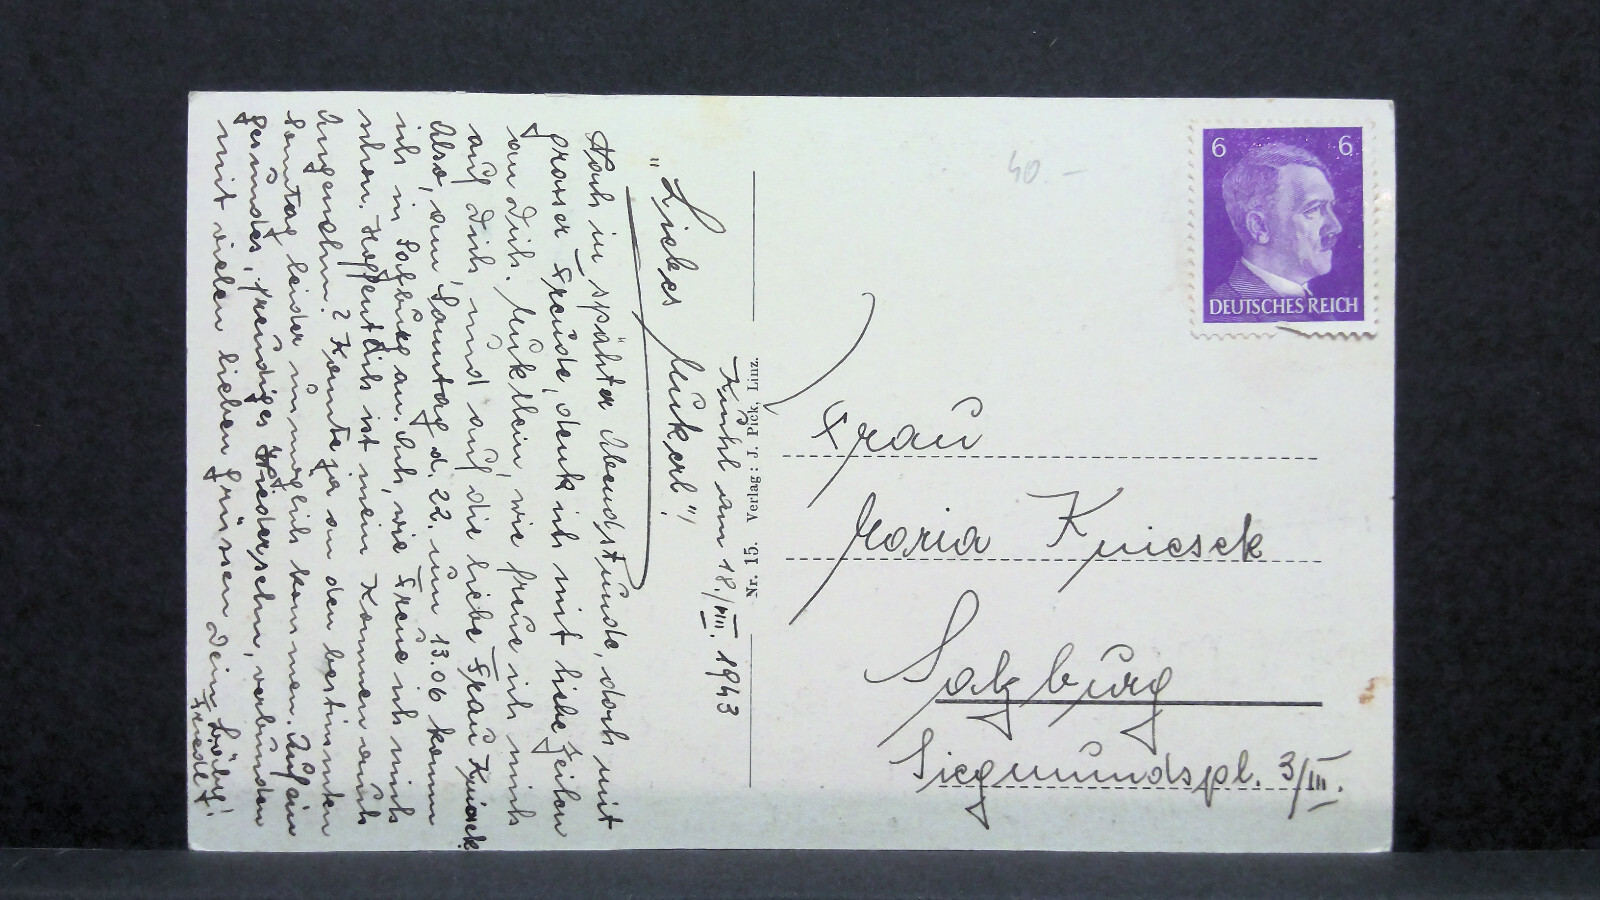 "Liebes Mükerl"!
Noch in später Abendstunde, doch mit
grosser Freude, denk ich mit liebe Zeilen
an Dich. Müklein, wie freue ich mich
auf Dich, und auf die liebe Frau Kniesek.
Also, am Sonntag d. 22. um 13.06 komm
ich in Salzburg an. Ach, wie freue ich mich
schon. Hoffentlich ist mein Kommen auch
Angenehm? Konnte ja an den bestimmten
Samtag leider unmöglich kommen. Auf ein
gesundes, freudiges Wiedersehn, verbunden
mit vielen lieben Grüssen Dein
Friedl!
am 18./VIII. 1943
Nr. 15. Verlag: J. Pick, Linz.
40.-
6 6
DEUTSCHES REICH
Frau
Maria Kniesek
Salzburg
Siegmundspl. 3/III.